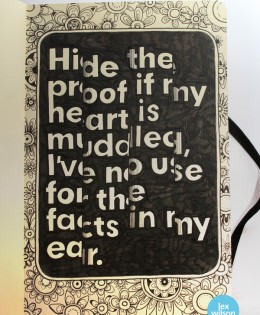 Hide the
proof if my
heart is
muddled,
I've no use
for the
facts in my
ear.
lex
wilson